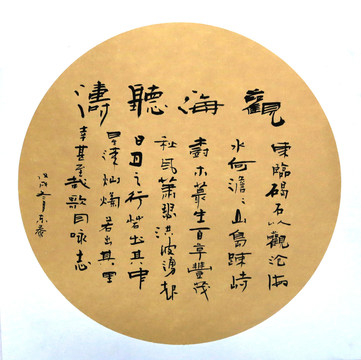 觀海聽濤
東臨碣石以觀滄海
水何澹〻山島竦峙
樹木叢生百草豐茂
秋風蕭瑟洪波湧起
日月之行若出其中
星漢燦爛若出其里
幸甚至哉歌以詠志